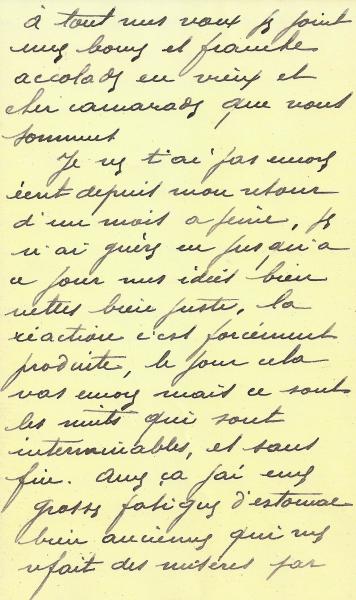 à tout mes voeux je joint
une bonne et franche
accolade en vieux et
cher camarade que nous
sommes
Je ne t'ai pas encore
écrit depuis mon retour
d'un mois a peine, je
n'ai guère eu jusqu'a
ce jour mes idées bien
nettes bien juste, la
réaction c'est forcément
produite, le jour cela
vas encore mais ce sont
les nuits qui sont
interminables, et sans
fin. Avec ça j'ai une
grosse fatigue d'estomac
bien ancienne qui me
fait des misères par